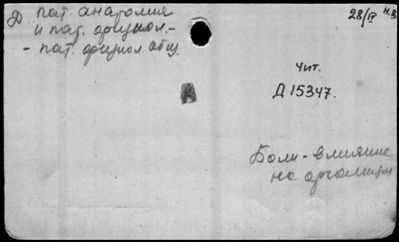 Д. пат анатомия
и пат. физиол.-
- пат. физиол общ.
28/IV н.в
Чит.
Д 15347.
Боли - влияние
на организм